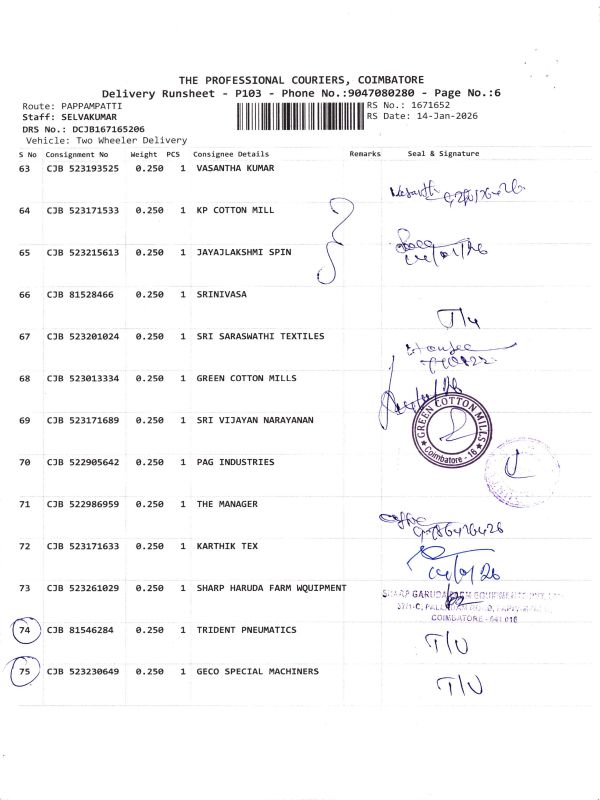 THE PROFESSIONAL COURIERS, COIMBATORE
Delivery Runsheet - P103 - Phone No.:9047080280 - Page No.:6
Route: PAPPAMPATTI
RS No.: 1671652
Staff: SELVAKUMAR
RS Date: 14-Jan-2026
DRS No.: DCJB167165206
Vehicle: Two Wheeler Delivery
S No Consignment No Weight PCS Consignee Details Remarks Seal & Signature
63 CJB 523193525 0.250 1 VASANTHA KUMAR
64 CJB 523171533 0.250 1 KP COTTON MILL
65 CJB 523215613 0.250 1 JAYAJLAKSHMI SPIN
14/01/26
66 CJB 81528466 0.250 1 SRINIVASA
T/U
67 CJB 523201024 0.250 1 SRI SARASWATHI TEXTILES
68 CJB 523013334 0.250 1 GREEN COTTON MILLS
GREEN COTTON MILLS
Coimbatore - 16
69 CJB 523171689 0.250 1 SRI VIJAYAN NARAYANAN
70 CJB 522905642 0.250 1 PAG INDUSTRIES
71 CJB 522986959 0.250 1 THE MANAGER
72 CJB 523171633 0.250 1 KARTHIK TEX
14/01/26
73 CJB 523261029 0.250 1 SHARP HARUDA FARM WQUIPMENT
SHARP GARUDA FARM EQUIPMENTS PVT. LTD
COIMBATORE - 641 016
74 CJB 81546284 0.250 1 TRIDENT PNEUMATICS T/U
75 CJB 523230649 0.250 1 GECO SPECIAL MACHINERS T/U